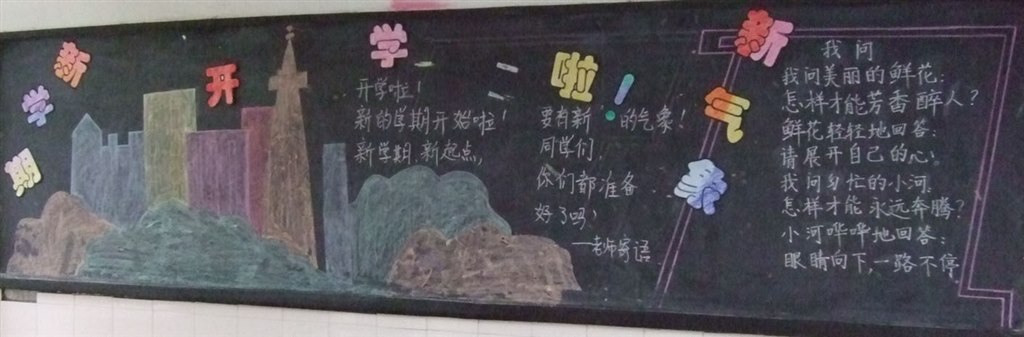 新学期
开学啦！
新气象
开学啦！
新的学期开始啦！
新学期，新起点，
要有新的气象！
同学们，
你们都准备
好了吗！
——老师寄语
我问
我问美丽的鲜花：
怎样才能芳香醉人？
鲜花轻轻地回答：
请展开自己的心。
我问匆忙的小河，
怎样才能永远奔腾？
小河哗哗地回答：
眼睛向下，一路不停